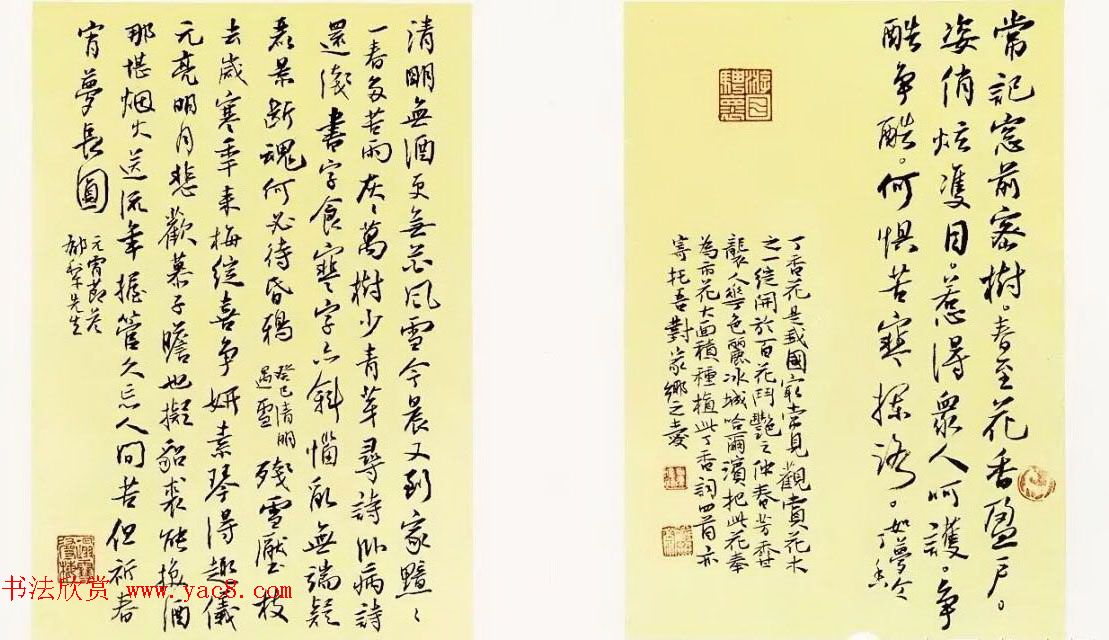 常記窓前密樹。春至花香盈戶。
姿俏炫雙目。惹得眾人呵護。爭
酷爭酷。何惧苦寒 如夢令
丁香花是我國最常見觀賞花木
之一綻開於百花鬥艷之仲春芳香
襲人 色麗冰城哈爾濱把此花奉
為市花大面積種植此丁香詞四首亦
寄托吾對家鄉之愛
游目騁懷
清明無酒更無花風雪今晨又到家黯〻
一春多苦雨灰〻萬樹少青芽尋詩卧病詩
還淺書字食寒字亦斜惱亂無端疑
暮景断魂何必待昏鴉
癸巳清明
遇雪
殘雪壓枝
去歲寒季来梅綻喜爭妍素琴得趣儀
元亮明月悲歡慕子瞻也擬貂裘能換酒
那堪烟火送流年握管久忘人間苦但祈春
宵夢長圓
元宵節答
郁犁先生
书法欣赏 www.yac8.com